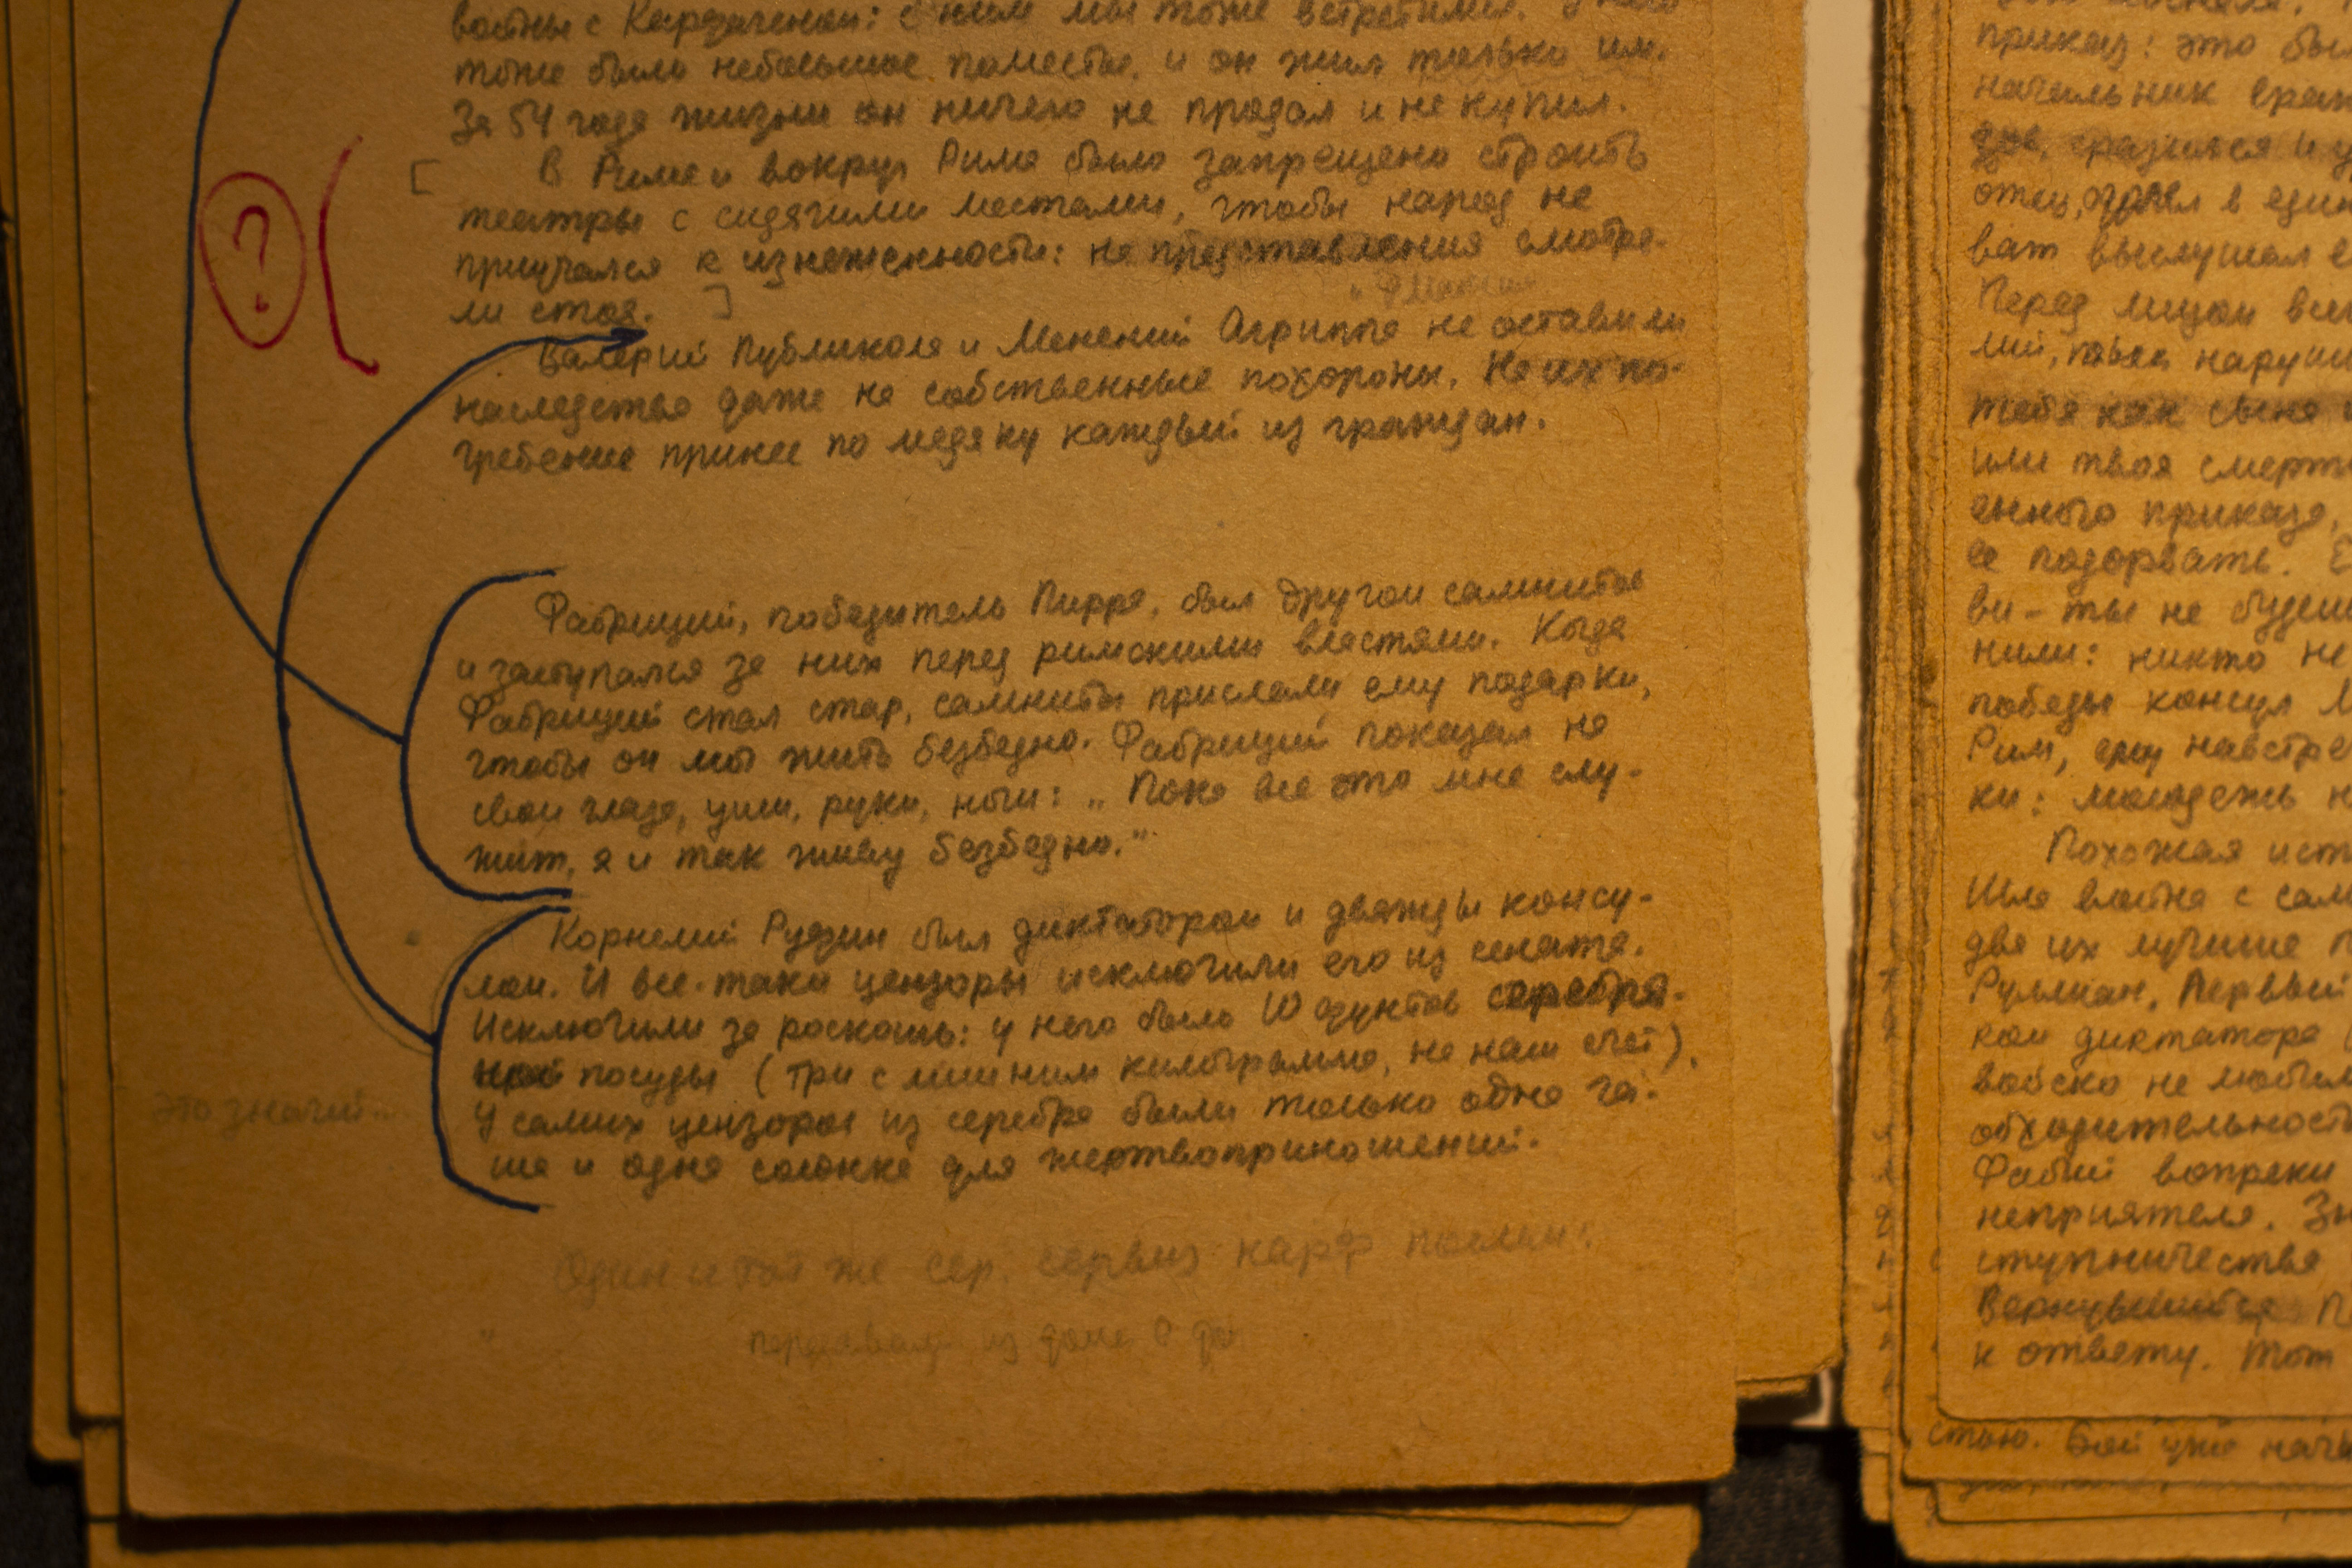 войны с Карфагеном: с ним мы тоже встретимся. У него
тоже было небольшое поместье, и он жил только им.
За 54 года жизни он ничего не продал и не купил.
[ В Риме и вокруг Рима было запрещено строить
театры с сидячими местами, чтобы народ не
приучался к изнеженности: на представления смотре-
ли стоя. ]
?
Валерий Публикола и Менений Агриппа не оставили
наследства даже на собственные похороны. На их по-
гребение принес по медяку каждый из граждан.
Фабриций, победитель Пирра, был другом самнитов
и заступался за них перед римскими властями. Когда
Фабриций стал стар, самниты прислали ему подарки,
чтобы он мог жить безбедно. Фабриций показал на
свои глаза, уши, руки, ноги: „Пока все это мне слу-
жит, я и так живу безбедно.“
Корнелий Руфин был диктатором и дважды консу-
лом. И все-таки цензоры исключили его из сената.
Исключили за роскошь: у него было 10 фунтов серебря-
ной посуды (три с лишним килограмма, на наш счет).
У самих цензоров из серебра были только одна ча-
ша и одна солонка для жертвоприношений.
Это значит
Один и тот же сер. сервиз карф
из дома в до
приказ: это
начальник
сразился и
отец,
выслушал
Перед лицом
тебя как сына
или твоя
приказа,
ее подорвать.
ви - ты не
нили: никто не
победы консул
Рим, ему
ки: молодежь
Похожая
Шла война с
две их лучшие
Руллиан. Первый
ком диктатора
войско не
Фабий вопреки
неприятеля.
ступничества
к ответу. Тот
стью. Бой уже